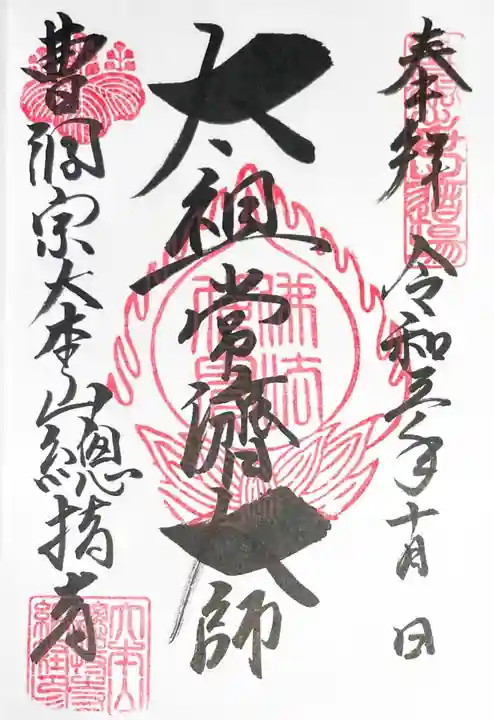 奉拝 令和三年十月 日
太祖常濟大師
曹洞宗大本山總持寺
佛法僧寶